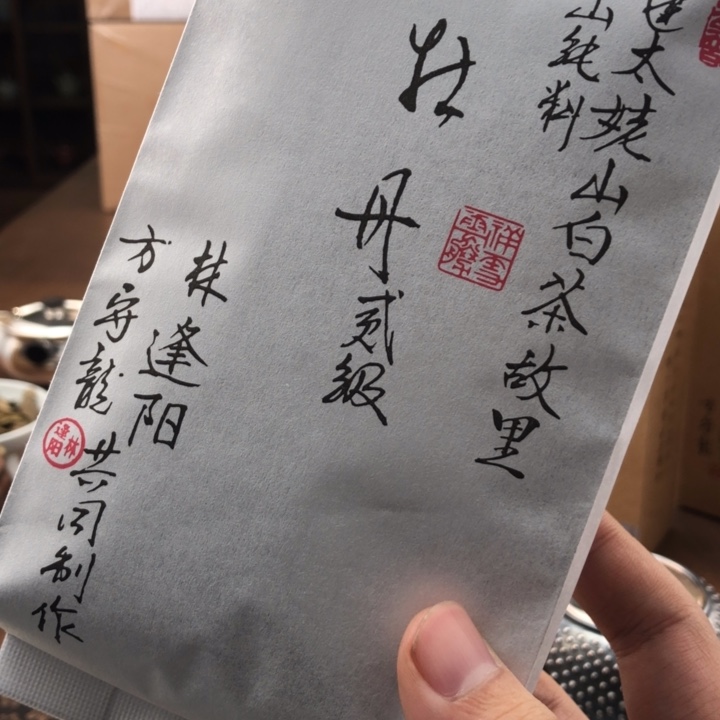 建太姥山白茶故里
山纯料
牡丹贰級
林逢阳
方守龍共同制作
林逢阳